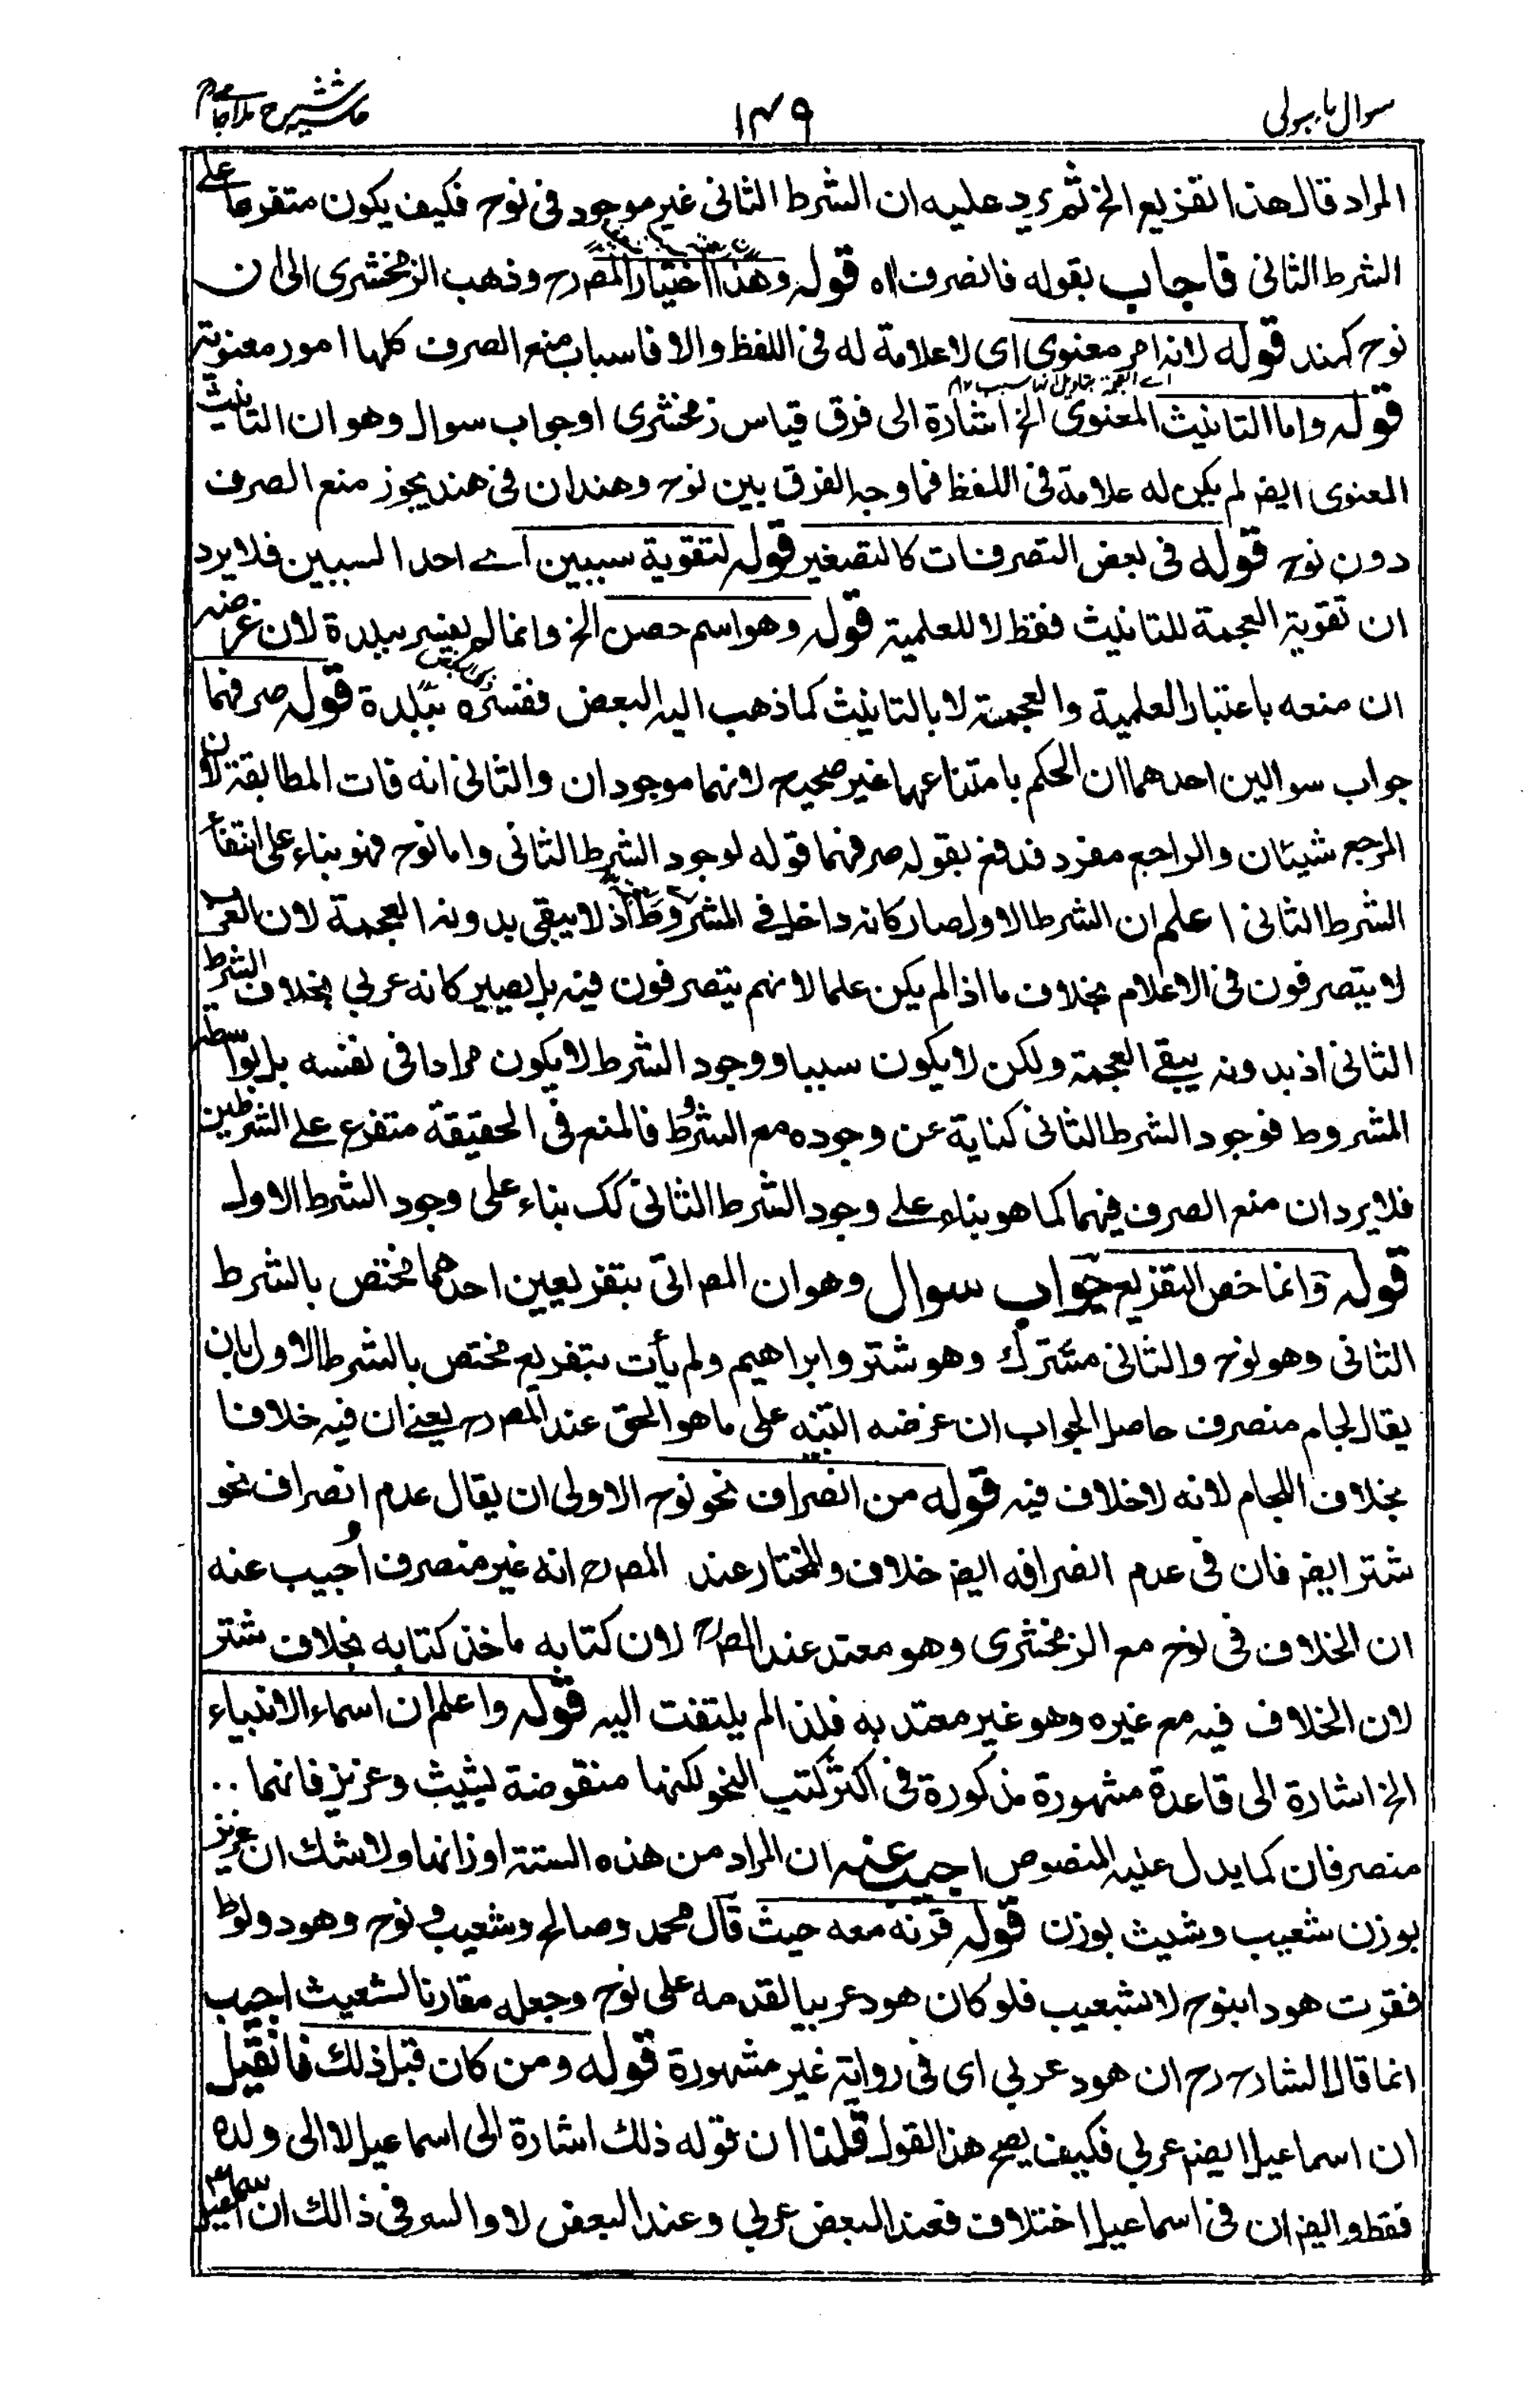 سوال باسولی ۱۴۹ حاشیہ شرح ملا جامی
المراد قال هذا تفريع الخ ثم يرد عليه ان الشرط الثانى غير موجود فى نوح فكيف يكون متفرعا على
الشرط الثانى فاجاب بقوله فانصرف اه قوله وهذا اختيار المصرح وذهب الزمخشرى الى ان
نوح كهند قوله لانه امر معنوى اى لا علامة له فى اللفظ والا فاسباب منع الصرف كلها امور معنوية
قوله واما التانيث المعنوى الخ اشارة الى فرق قياس زمخشرى او جواب سوال وهو ان التانيث
المعنوى ايضا لم يكن له علامة فى اللفظ فما وجه الفرق بين نوح وهند ان فى هند يجوز منع الصرف
دون نوح قوله فى بعض التصرفات كالتصغير قوله لتقوية سببين اے احد السببين فلا يرد
ان تقوية العجمة للتانيث فقط لا للعلمية قوله وهو اسم حصن الخ وانما لم يفسر ببلدة لان غرضه
ان منعه باعتبار العلمية والعجمة لا بالتانيث كما ذهب اليه البعض ففسره ببلدة قوله صرفهما
جواب سوالين احدهما ان الحكم بامتناعهما غير صحيح لانهما موجودان والثانى انه فات المطابقة لان
المرجع شيئان والراجع مفرد فدفع بقوله صرفهما قوله لوجود الشرط الثانى واما نوح فهو بناء على انتفاء
الشرط الثانى اعلم ان الشرط الاول صار كانه داخل فى المشروط اذ لا يبقى بدونه العجمة لان العرب
لا يتصرفون فى الاعلام بخلاف ما اذا لم يكن علما لانهم يتصرفون فيه بل يصير كانه عربي بخلاف الشرط
الثانى اذ بدونه يبقے العجمة ولكن لا يكون سببا ووجود الشرط لا يكون مرادا فى نفسه بل بواسطة
المشروط فوجود الشرط الثانى كناية عن وجوده مع المشروط فالمنع فى الحقيقة متفرع على الشرطين
فلا يرد ان منع الصرف فيهما كما هو بناء علے وجود الشرط الثانى كك بناء على وجود الشرط الاول
قوله وانما خص التفريع جواب سوال وهو ان المص اتى بتفريعين احدهما مختص بالشرط
الثانى وهو نوح والثانى مشترك وهو شتر وابراهيم ولم يأت بتفريع مختص بالشرط الاول بان
يقال لجام منصرف حاصل الجواب ان غرضه التنبه على ما هو الحق عند المصرح يعنى ان فيه خلافا
بخلاف اللجام لانه لا خلاف فيه قوله من انصراف نحو نوح الاولى ان يقال عدم انصراف نحو
شتر ايضا فان فى عدم انصرافه ايضا خلاف والمختار عند المصرح انه غير منصرف اجيب عنه
ان الخلاف فى نوح مع الزمخشرى وهو معتد عند المصرح لان كتابه ماخذ كتابه بخلاف شتر
لان الخلاف فيه مع غيره وهو غير معتد به فلذا لم يلتفت اليه قوله واعلم ان اسماء الانبياء
الخ اشارة الى قاعدة مشهورة مذكورة فى اكثر كتب النحو لكنها منقوضة بشيث وعزيز فانهما ..
منصرفان كما يدل عليه المنصوص اجيب عنه ان المراد من هذه الستة اوزانها ولا شك ان عزيز
بوزن شعيب وشيث بوزن قوله قرنه معه حيث قال محمد وصالح وشعيب و نوح وهود ولوط
فقرت هودا بنوح لا لشعيب فلو كان هود عربيا لقدمه على نوح وجعله مقارنا لشعيث اجيب
انما قال الشارح رح ان هود عربي اى فى رواية غير مشهورة قوله ومن كان قبل ذلك فان قيل
ان اسماعيل ايضا عربي فكيف يصح هذا القول قلنا ان قوله ذلك اشارة الى اسماعيل لا الى ولده
فقط وايضا ان فى اسماعيل اختلاف فعند البعض عربي وعند البعض لا والسر فى ذالك ان اسماعيل